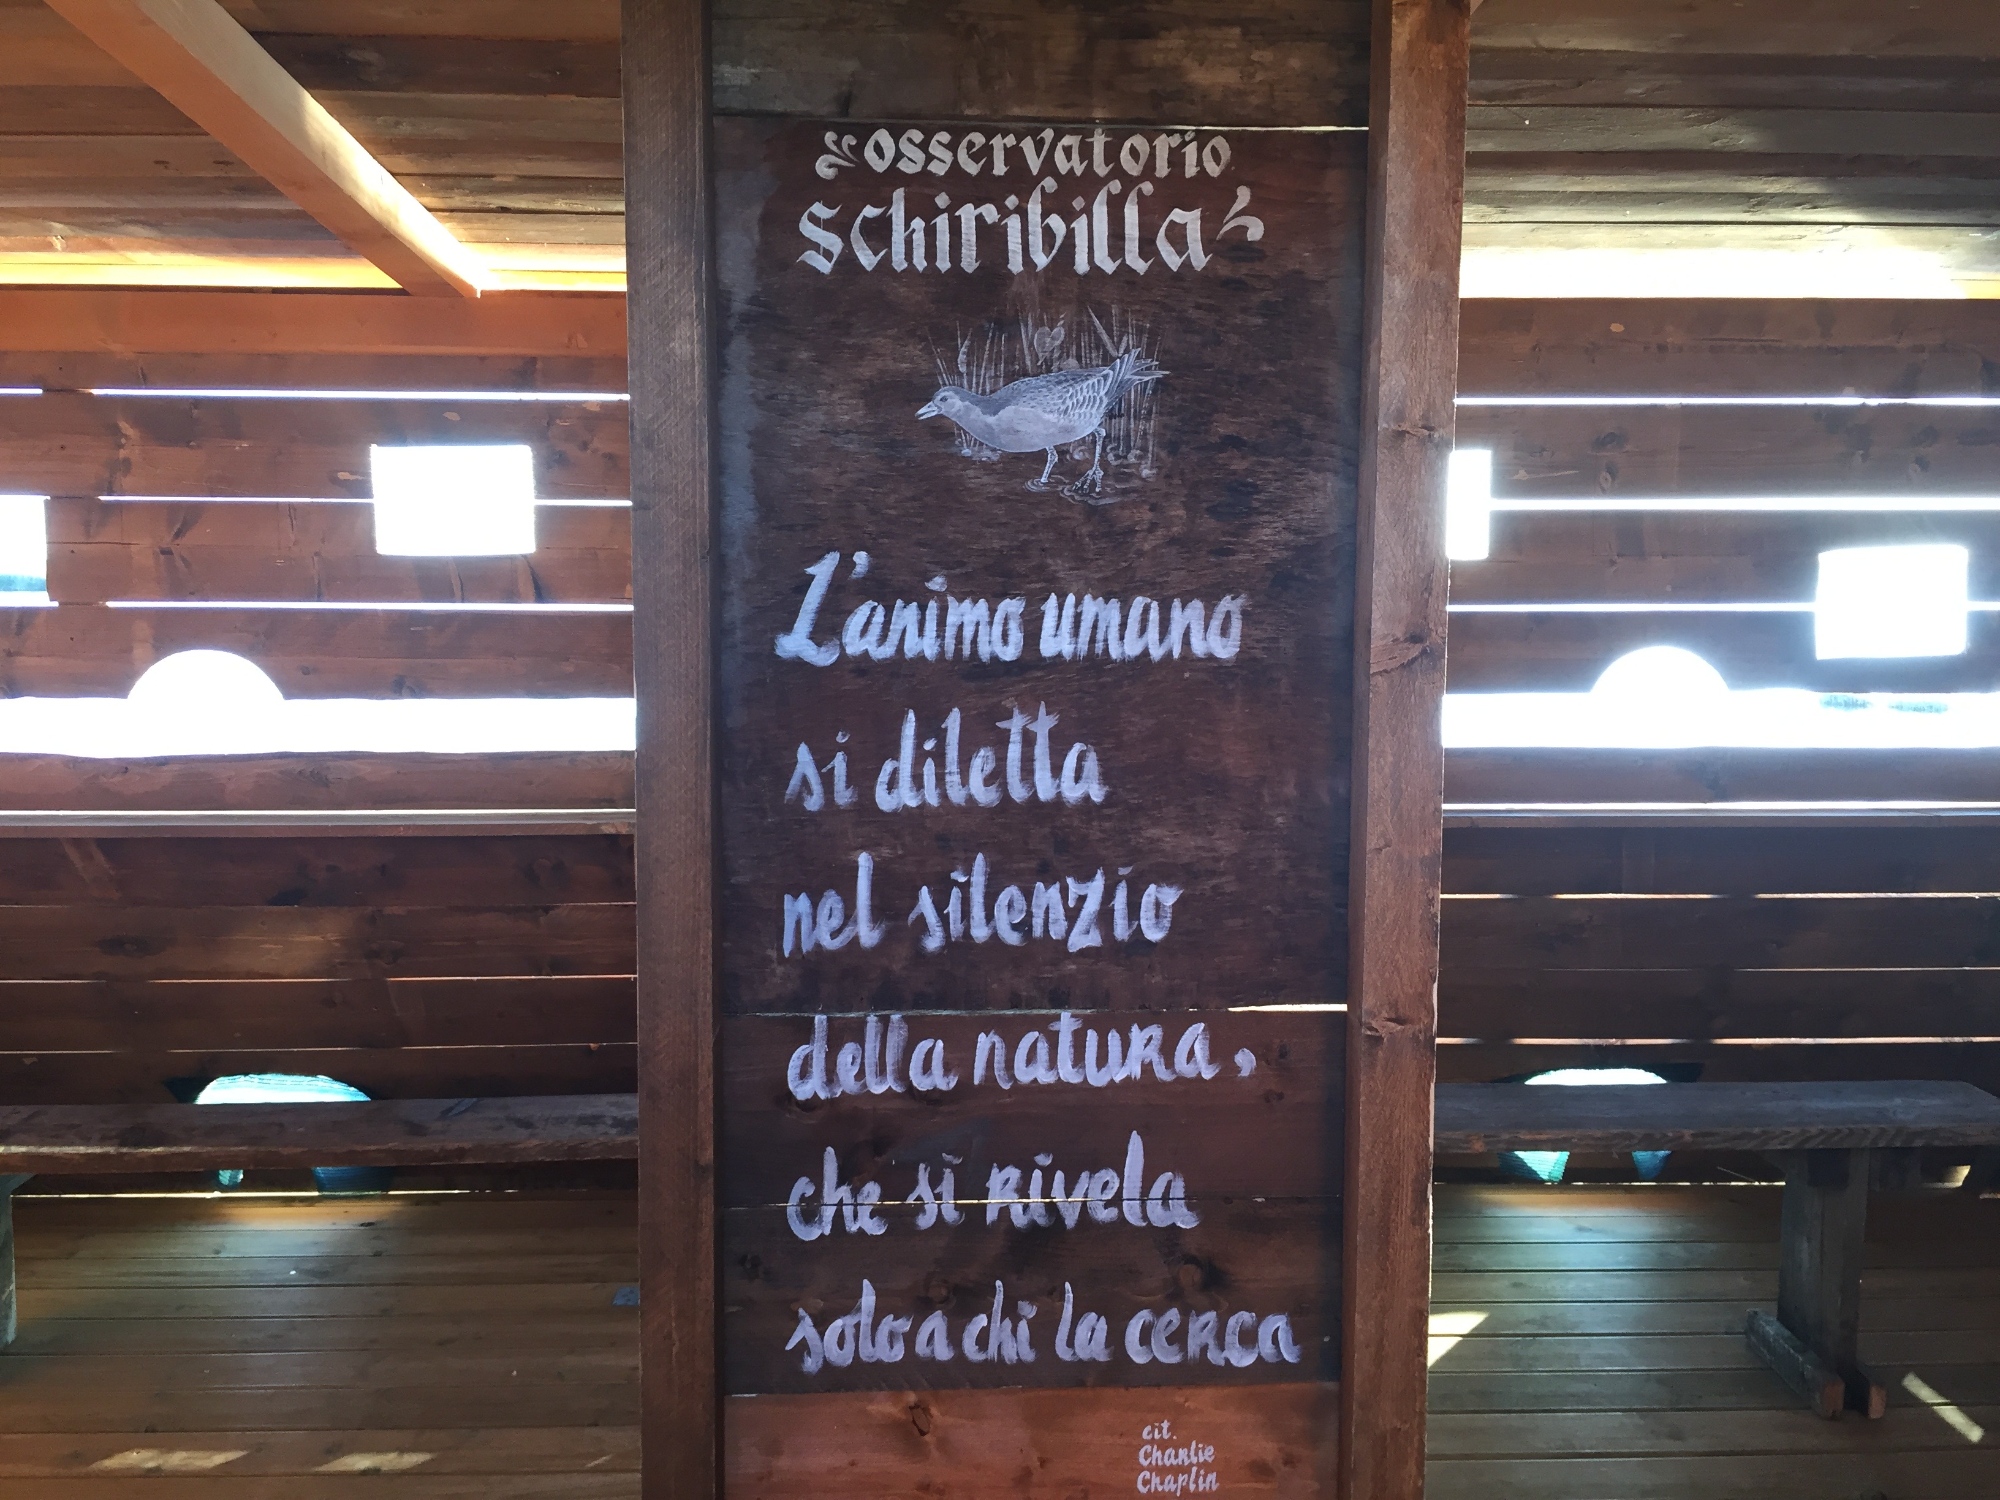 osservatorio
schiribilla
L'animo umano
si diletta
nel silenzio
della natura,
che si rivela
solo a chi la cerca
cit.
Charlie
Chaplin